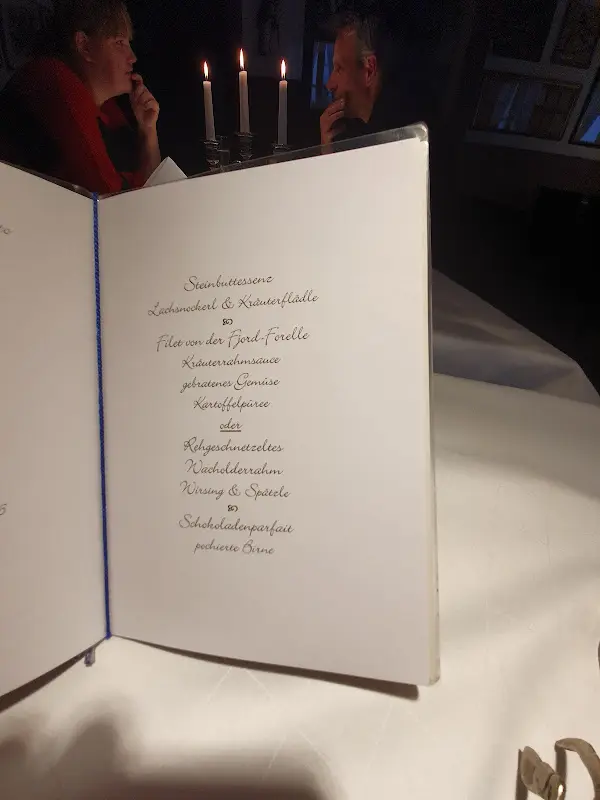 Steinbuttessenz
Lachsnockerl & Kräuterflädle
Filet von der Fjord-Forelle
Kräuterrahmsauce
gebratenes Gemüse
Kartoffelpüree
oder
Rehgeschnetzeltes
Wacholderrahm
Wirsing & Spätzle
Schokoladenparfait
pochierte Birne